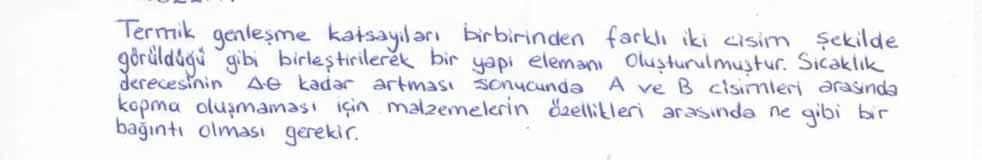 Termik genleşme katsayıları birbirinden farklı iki cisim şekilde
görüldüğü gibi birleştirilerek bir yapı elemanı oluşturulmuştur. Sıcaklık
derecesinin ΔΘ kadar artması sonucunda A ve B cisimleri arasında
kopma oluşmaması için malzemelerin özellikleri arasında ne gibi bir
bağıntı olması gerekir.